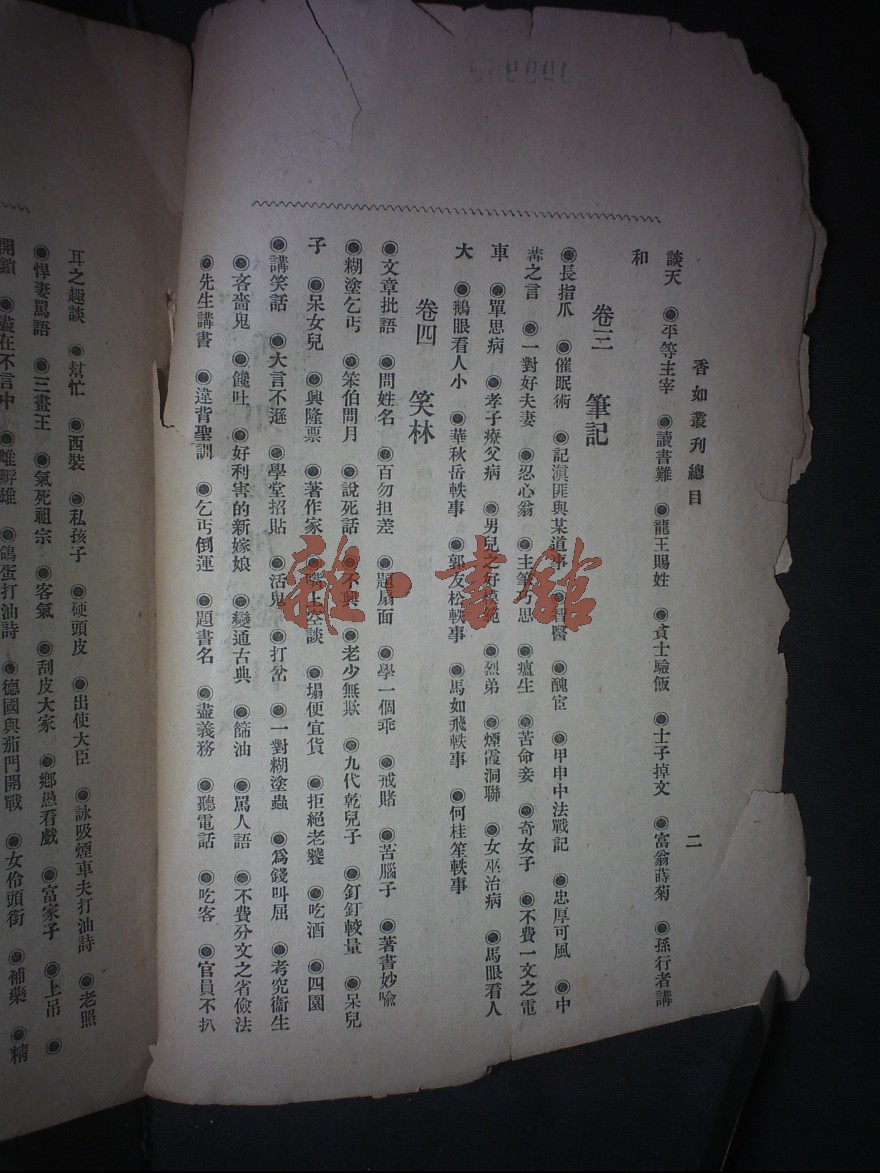 香如叢刊總目
二
談天　◉平等主宰　◉讀書難　◉龍王賜姓　◉貪士驗飯　◉士子掉文　◉富翁蒔菊　◉孫行者講
和
卷三　筆記
◉長指爪　◉催眠術　◉記滇匪與某道事　醫　◉醜宦　◉甲申中法戰記　◉忠厚可風　◉中
冓之言　◉一對好夫妻　◉忍心翁　◉主筆巧思　◉瘟生　◉苦命妾　◉奇女子　◉不費一文之電
車　◉單思病　◉孝子療父病　◉男兒之好　◉烈弟　◉煙霞洞聯　◉女巫治病　◉馬眼看人
大　◉鵝眼看人小　◉華秋岳軼事　◉郭友松軼事　◉馬如飛軼事　◉何桂笙軼事
卷四　笑林
◉文章批語　◉問姓名　◉百勿担差　◉題扇面　◉學一個乖　◉戒賭　◉苦腦子　◉著書妙喩
◉糊塗乞丐　◉笨伯問月　◉說死話　◉不興　◉老少無欺　◉九代乾兒子　◉釘釘較量　◉呆兒
子　◉呆女兒　◉興隆票　◉著作家　◉嘴上空談　◉塌便宜貨　◉拒絕老饕　◉吃酒　◉四園
◉講笑話　◉大言不遜　◉學堂招貼　◉活鬼　◉打岔　◉一對糊塗蟲　◉爲錢叫屈　◉考究衞生
◉吝嗇鬼　◉饞吐　◉好利害的新嫁娘　◉變通古典　◉篩油　◉罵人語　◉不費分文之省儉法
◉先生講書　◉違背聖訓　◉乞丐倒運　◉題書名　◉盡義務　◉聽電話　◉吃客　◉官員不扒
耳之趣談　◉幫忙　◉西裝　◉私孩子　◉硬頭皮　◉出使大臣　◉詠吸煙車夫打油詩　◉老照
◉悍妻罵語　◉三畫王　◉氣死祖宗　◉客氣　◉刮皮大家　◉鄉愚看戲　◉富家子　◉上吊　◉
開鎖　◉盡在不言中　◉雌孵雄　◉鴿蛋打油詩　◉德國與茄門開戰　◉女伶頭銜　◉補藥　◉精
雜·書館